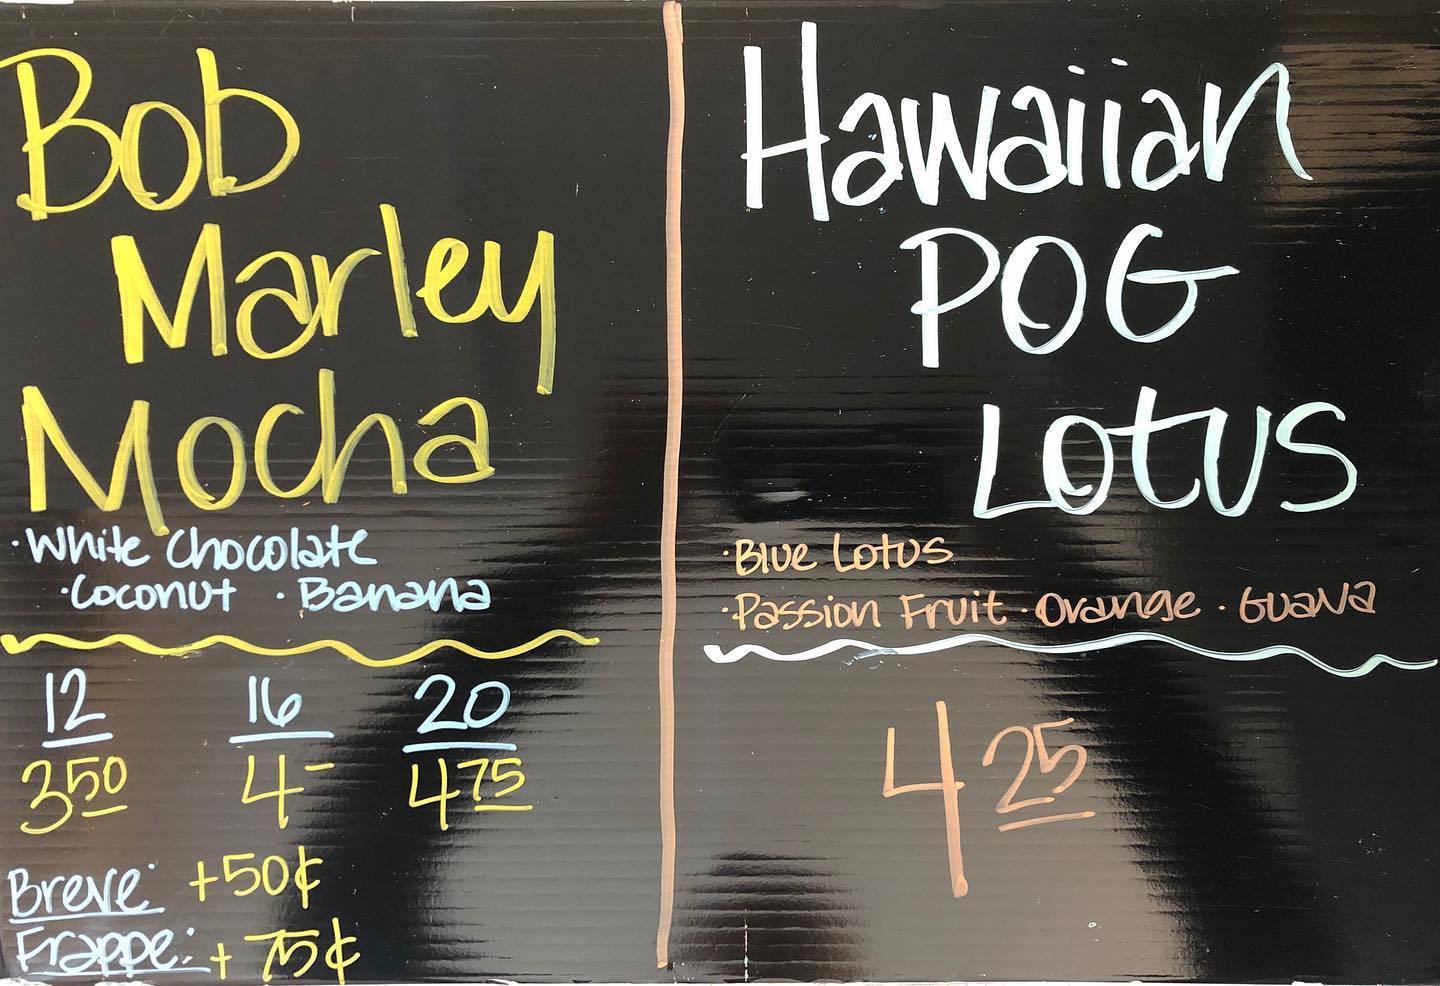 Bob
Marley
Mocha
·White Chocolate
·Coconut ·Banana
12 16 20
3 50 4 - 4 75
Breve: +50¢
Frappe: +75¢
Hawaiian
POG
Lotus
·Blue Lotus
·Passion Fruit ·Orange ·Guava
4 25